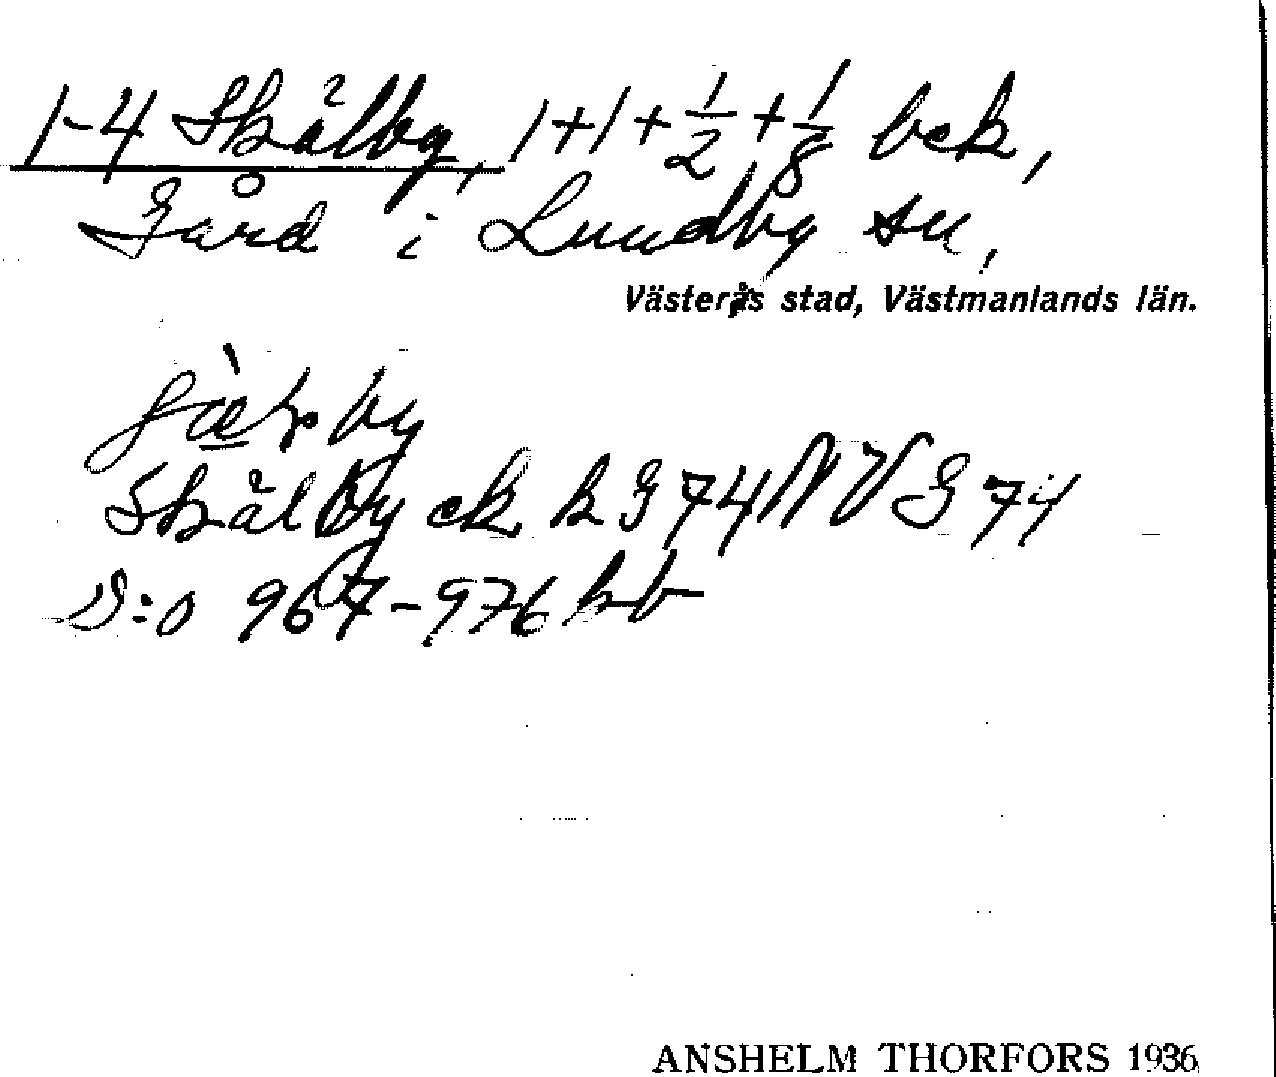 1-4 Skälby, 1+1+1/2+1/8 bek,
Gård i Lundby sn,
Västerås stad, Västmanlands län.
by
Skälby ek k G 74 NV G 74
D:o 967-976 hb
ANSHELM THORFORS 1936